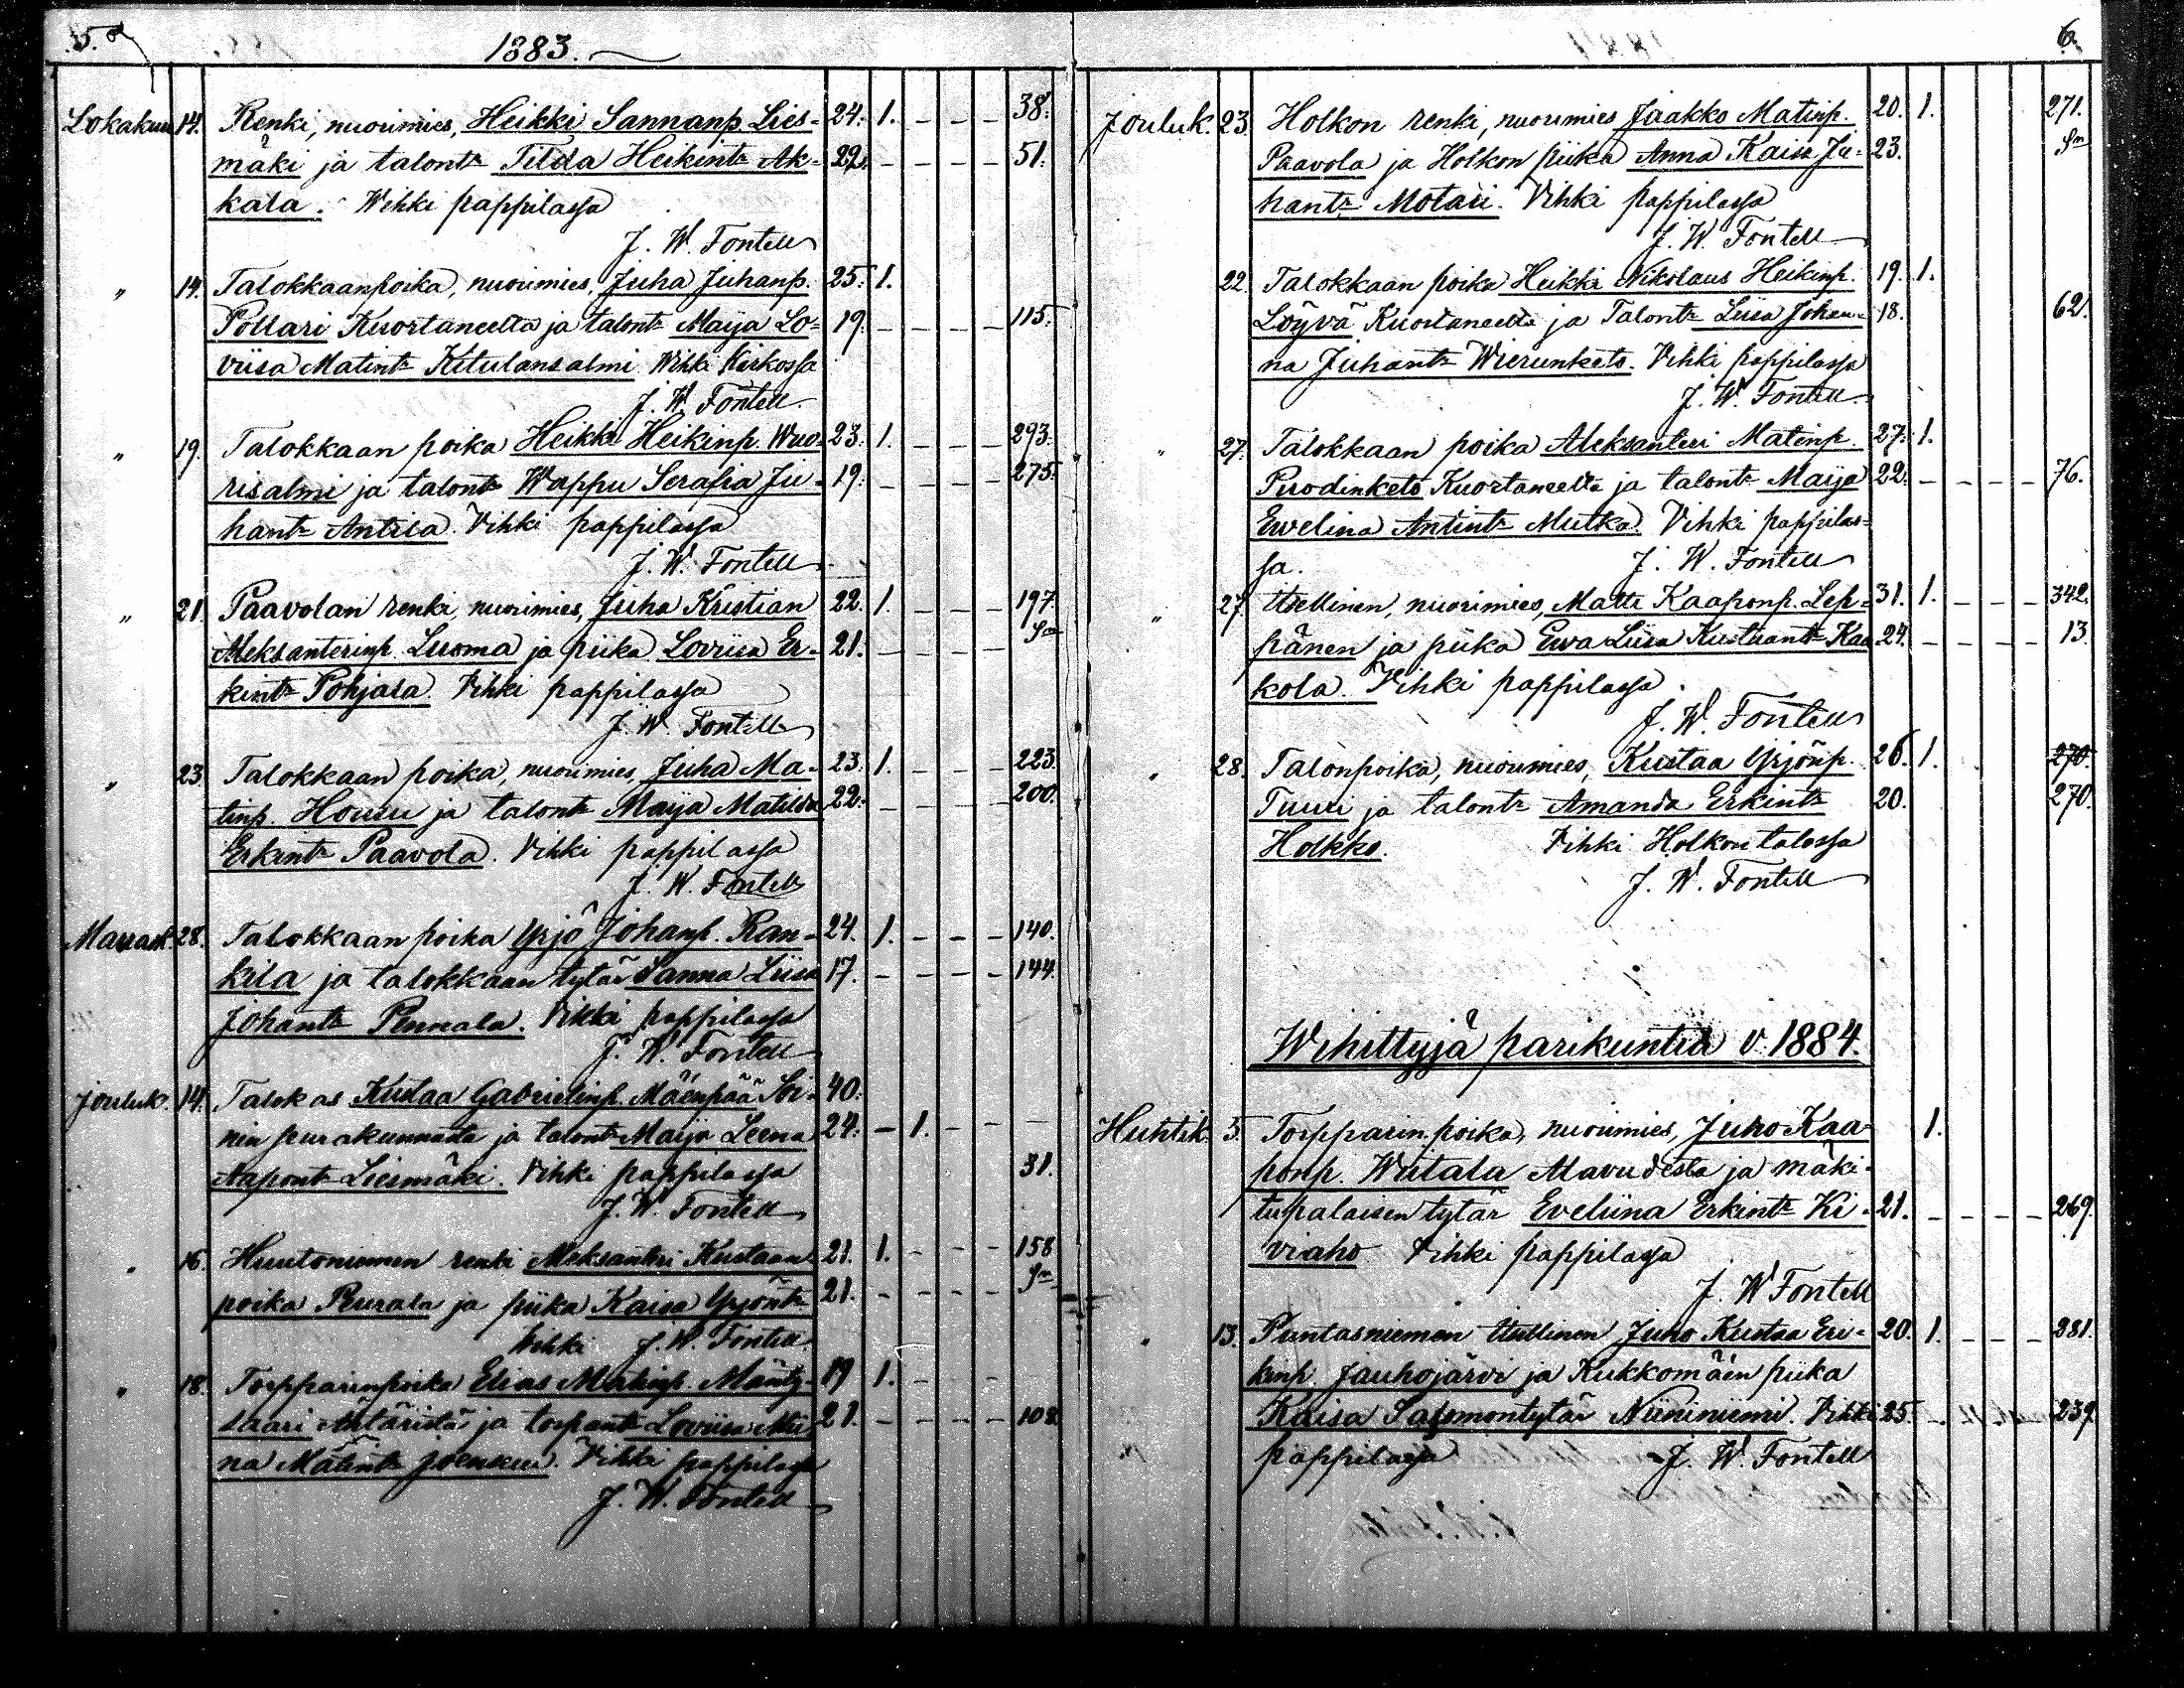 5.
1883.
Lokakuu 14. Renki, nuorimies, Heikki Sannanp. Lies- 24. 1. – – – 38.
mäki ja talontr Tilda Heikintr Ak- 22. – – – – 51.
kala. Wihki pappilassa
J. W. Fontell
" 14. Talokkaanpoika, nuorimies, Juha Juhanp. 25. 1.
Pollari Kuortaneelta ja talontr Maija Lo- 19. – – – – 115.
viisa Matintr Ketulansalmi. Wihki Kirkossa
J. W. Fontell.
" 19. Talokkaan poika Heikki Heikinp. Wuo- 23. 1. – – – 293.
risalmi ja talontr Wappu Serafia Ju- 19. – – – – 275.
hantr Antila. Vihki pappilassa
J. W. Fontell
" 21. Paavolan renki, nuorimies, Juha Kristian 22. 1. – – – 197.
Aleksanterinp. Luoma ja piika Loviisa Er- 21. – – – – Sm
kintr Pohjala. Vihki pappilassa
J. W. Fontell
" 23. Talokkaan poika, nuorimies, Juha Ma- 23. 1. – – – 223.
tinp. Housu ja talontr Maija Matilda 22. – – – – 200.
Erkintr Paavola. Vihki pappilassa
J. W. Fontell
Marrask. 28. Talokkaan poika Yrjö Johanp. Ran- 24. 1. – – – 140.
kila ja talokkaan tytär Sanna Liisa 17. – – – – 144.
Johantr Pennala. Vihki pappilassa
J. W. Fontell
Jouluk. 14. Talokas Kustaa Gabrielinp. Mäenpää Soi- 40.
nin seurakunnasta ja talontr Maija Leena 24. – 1. – – –
Aapontr Liesmäki. Vihki pappilassa 31.
J. W. Fontell
" 16. renki Aleksanteri Kustaan 21. 1. – – – 158
poika Peurala ja piika Kaisa Yrjöntr 21. – – – – Sm
Vihki J. W. Fontell
" 18. Torpparinpoika Elias Matinp. Mänty- 19 1. – – –
saari Ätäristä ja torpantr Loviisa Mii 21. – – – – 108.
na Matintr Joensuu. Vihki pappilassa
J. W. Fontell
6.
Jouluk. 23. Holkon renki, nuorimies Jaakko Matinp. 20. 1. 271.
Paavola ja Holkon piika Anna Kaisa Ju- 23. Sm
hantr Motari. Vihki pappilassa
J. W. Fontell
22. Talokkaan poika Heikki Nikolaus Heikinp. 19. 1.
Löyvä Kuortaneelta ja Talontr Liisa Johan- 18. 62.
na Juhantr Wierunketo. Vihki pappilassa
J. W. Fontell.
" 27. Talokkaan poika Aleksanteri Matinp. 27. 1.
Kuortaneelta ja talontr Maija 22. – – – – 76.
Ewelina Antintr Mutka. Vihki pappilas-
sa. J. W. Fontell
" 27. Itsellinen, nuorimies, Matti Kaaponp. Lep- 31. 1. – – – 342.
pänen ja piika Ewa Liisa Kustaantr Kaa 24. – – – – 13.
kola. Vihki pappilassa.
J. W. Fontell
" 28. Talonpoika, nuorimies, Kustaa Yrjönp. 26. 1. 270.
Tuuri ja talontr Amanda Erkintr 20. 270.
Holkko. Vihki Holkon talossa
J. W. Fontell
Wihittyjä parikuntia v. 1884.
Huhtik. 5. Torpparin poika, nuorimies, Juho Kaa- 1.
ponp. Wiitala Alavudesta ja mäki-
tupalaisen tytär Eveliina Erkintr Ki- 21. – – – – 269.
viaho. Vihki pappilassa
J. W Fontell
" 13. Puntasniemen Itsellinen Juho Kustaa Eri- 20. 1. – – – 281.
kinp. Jauhojärvi ja Kukkomäen piika
Kaisa Salomontytär Niininiemi. Vihki 25. – 239.
pappilassa J. W. Fontell